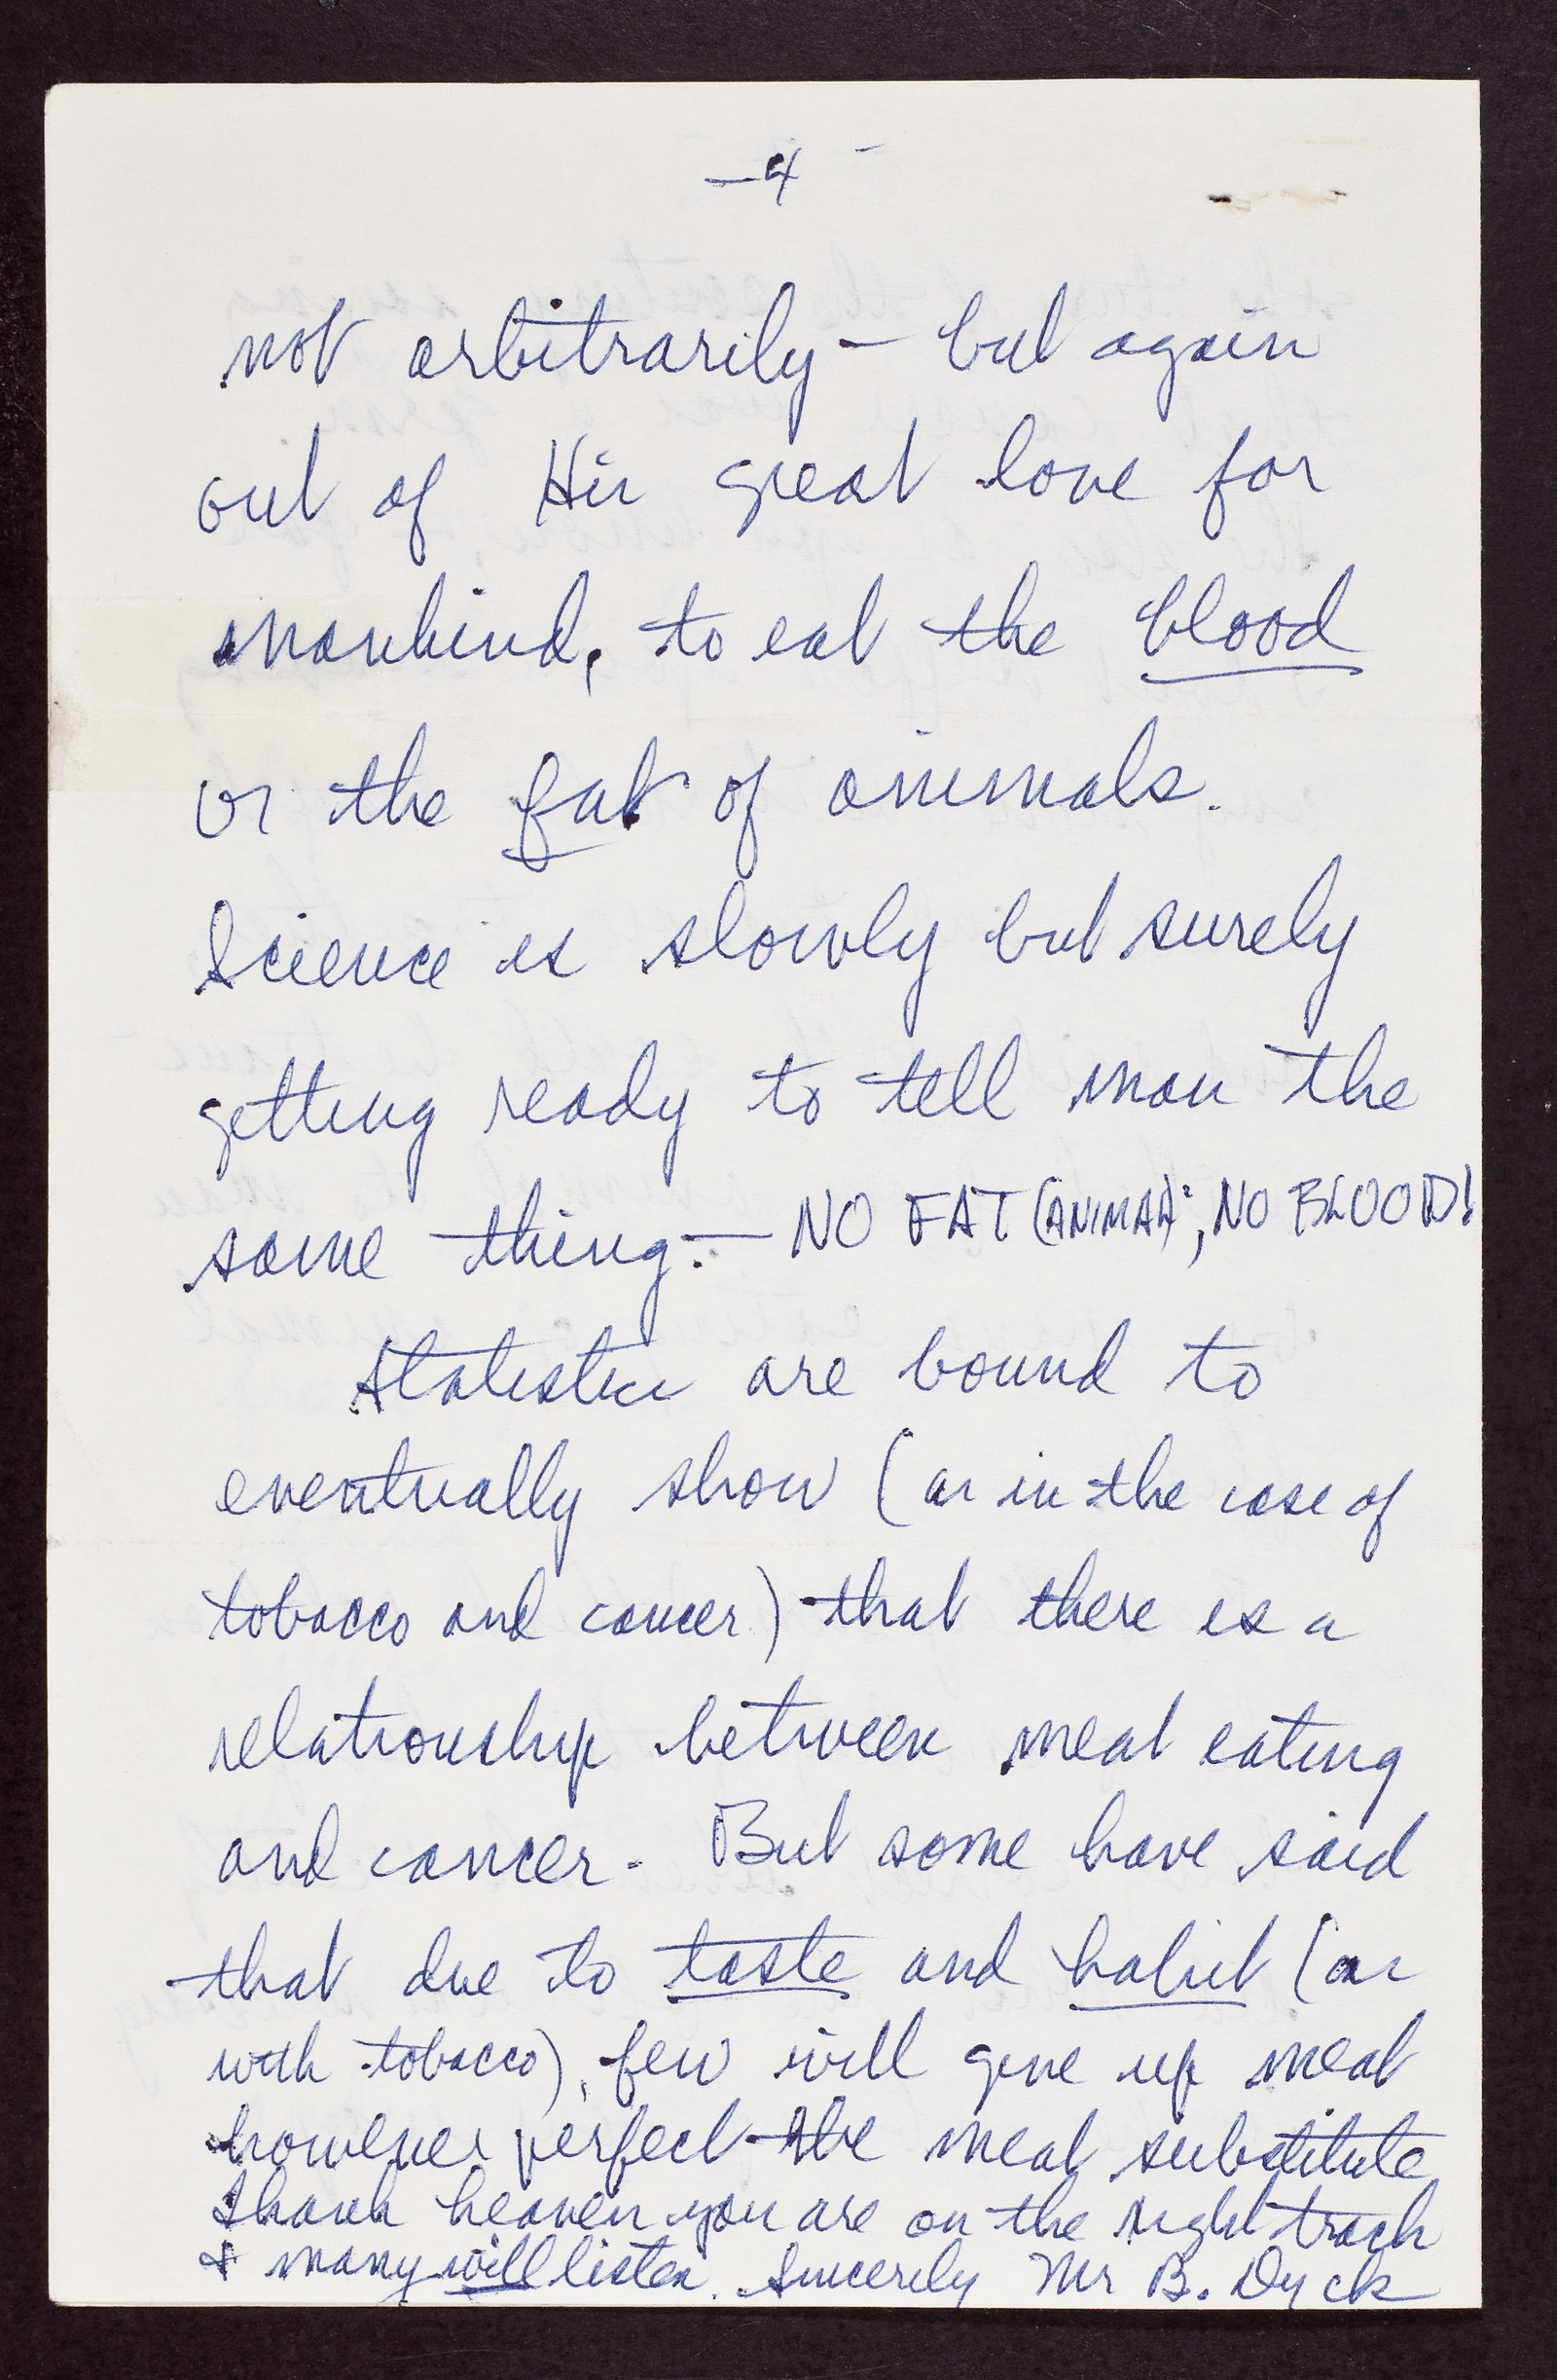 — 4 -
not arbitrarily — but again
out of His great love for
mankind, to eat the blood
or the fat of animals.
Science is slowly but surely
getting ready to tell man the
same thing. — NO FAT (ANIMAL), NO BLOOD!
Statistics are bound to
eventually show (as in the case of
tobacco and cancer) that there is a
relationship between meat eating
and cancer. But some have said
that due to taste and habit (as
with tobacco), few will give up meat
however perfect the meat substitute
Thank heaven you are on the right track
& many will listen. Sincerely Mr B. Dyck